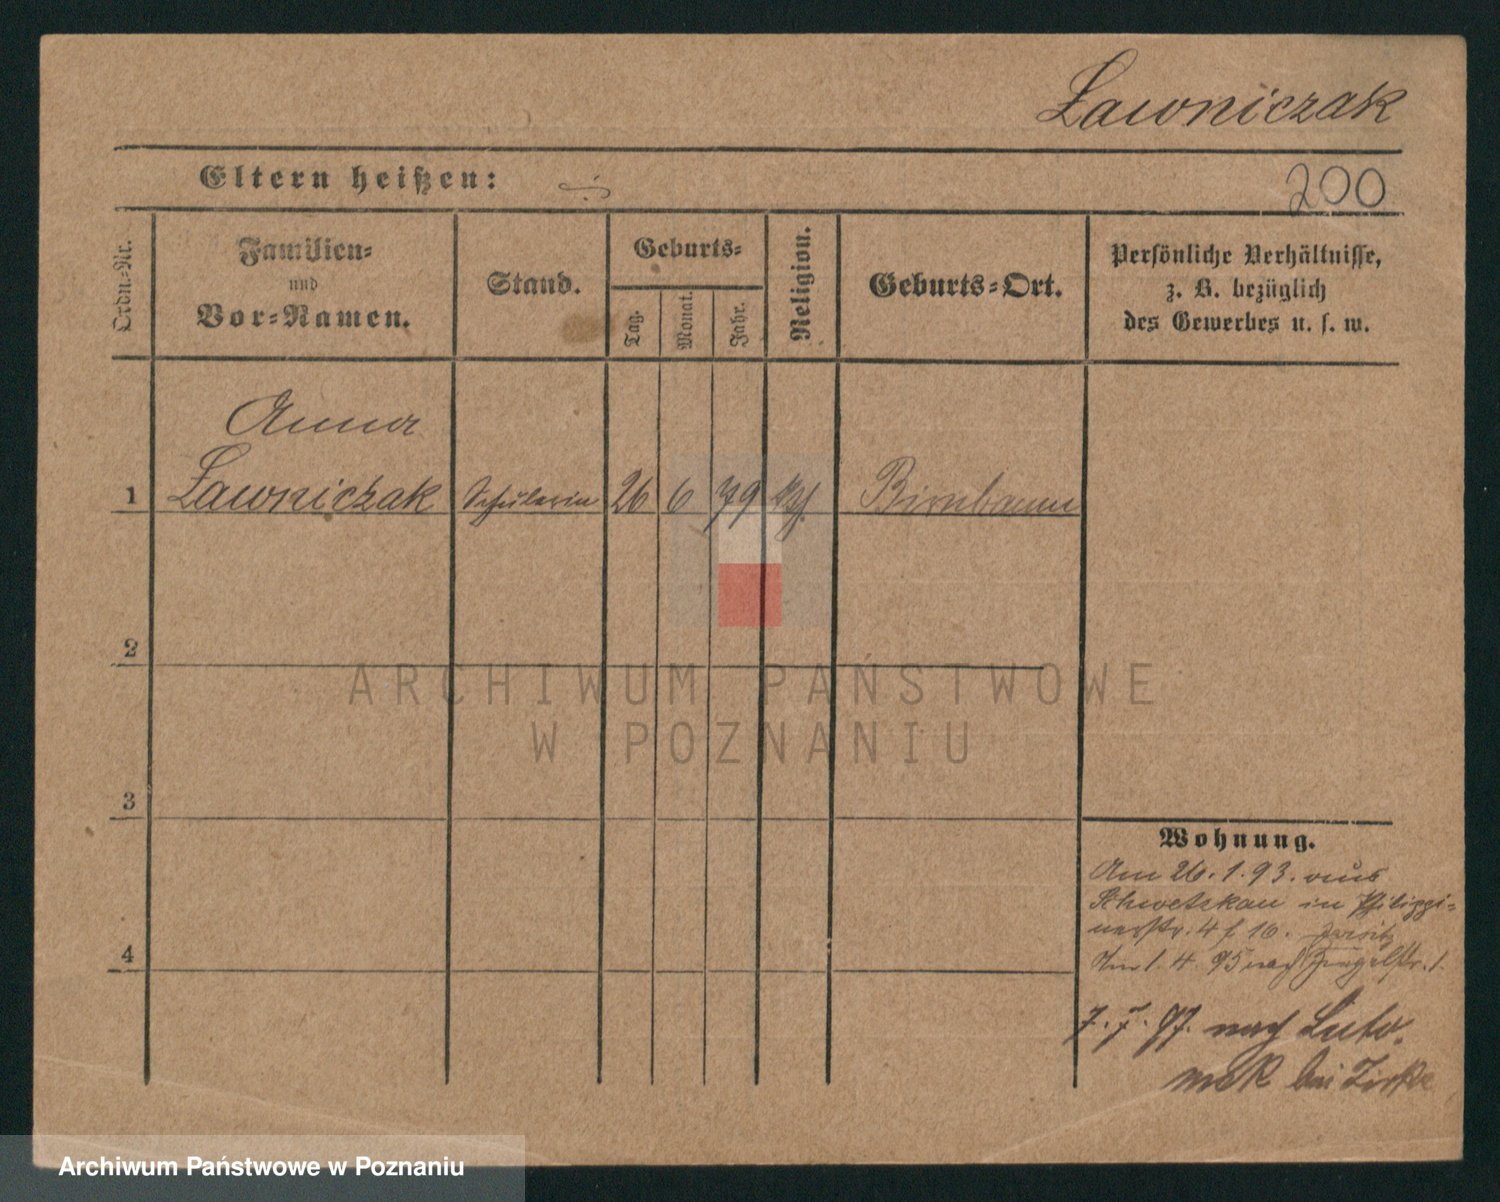 Ławniczak
Eltern heißen:
200
Ordn.-Nr.
Familien-
und
Vor-Namen.
Stand.
Geburts-
Tag.
Monat.
Jahr.
Religion.
Geburts-Ort.
Persönliche Verhältnisse,
z. B. bezüglich
des Gewerbes u. s. w.
Anna
1 Ławniczak Schülerin 26 6 79 kth. Birnbaum
2
ARCHIWUM PAŃSTWOWE
W POZNANIU
3
Wohnung.
Am 26.1.93. aus
Schwetzkau in Philippi-
nerstr. 4 f 16.
Am 1. 4. 95 nach Ziegelstr. 1.
4
7. 7. 97. nach Luto-
mek bei Zirke
Archiwum Państwowe w Poznaniu